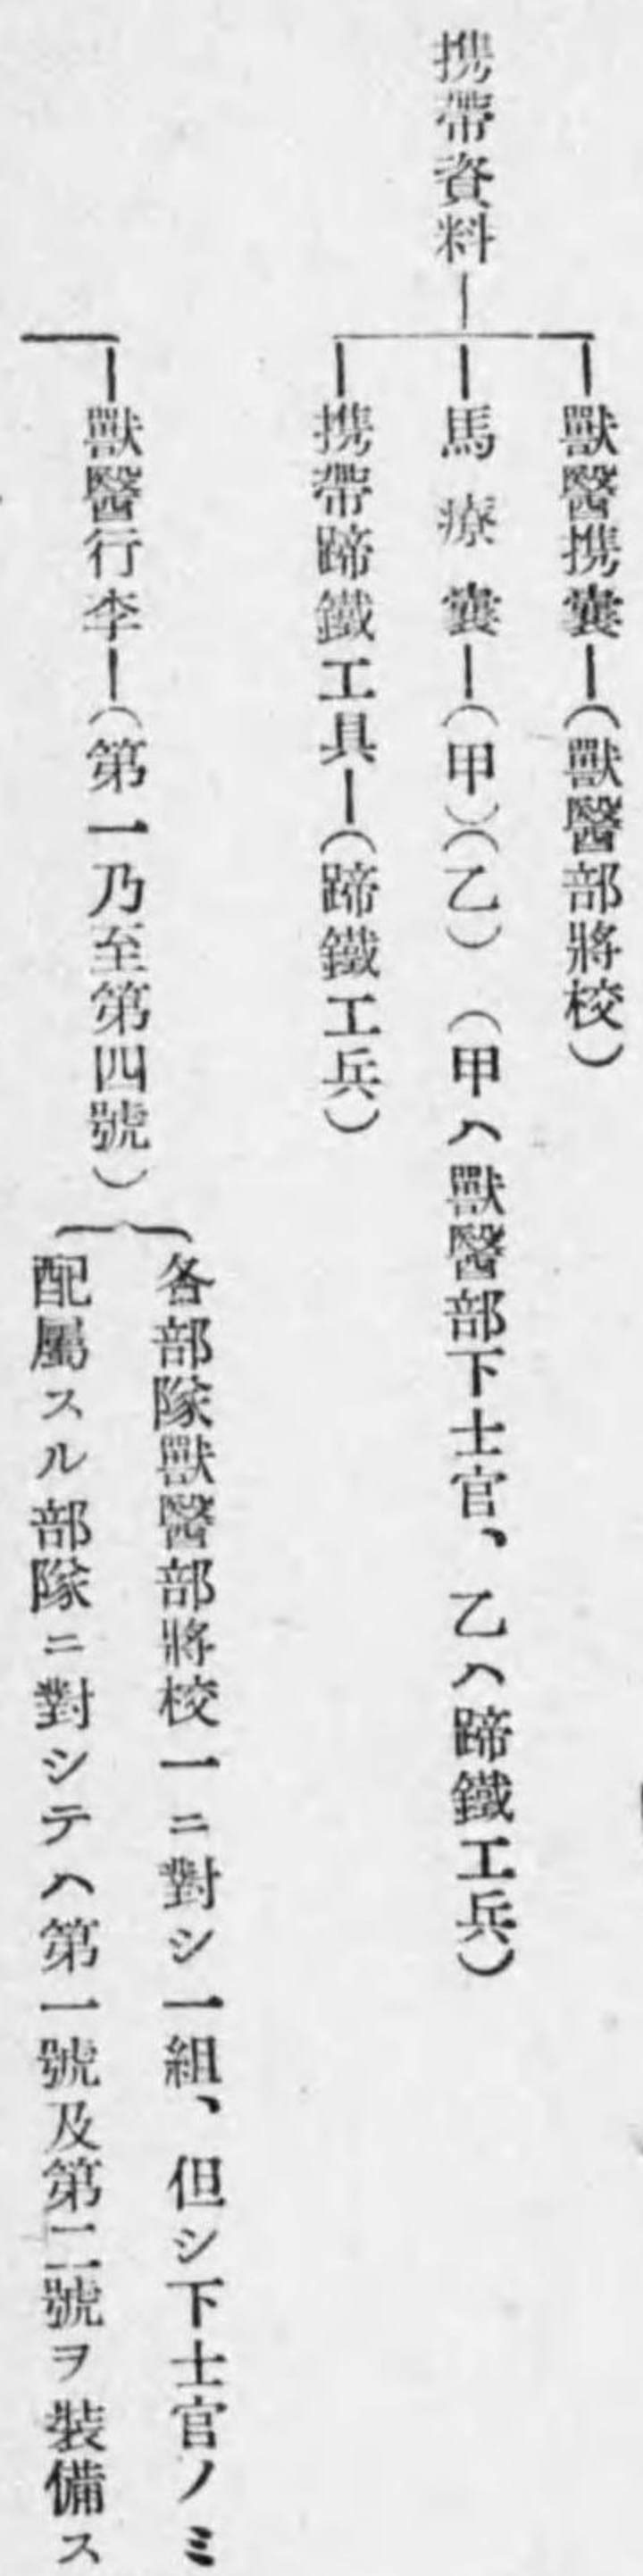 携帶資料
獸醫携囊―(獸醫部將校)
馬療囊―(甲)(乙) (甲ハ獸醫部下士官、乙ハ蹄鐵工兵)
携帶蹄鐵工具―(蹄鐵工兵)
獸醫行李―(第一乃至第四號)
各部隊獸醫部將校一ニ對シ一組、但シ下士官ノミ
配屬スル部隊ニ對シテハ第一號及第二號ヲ裝備ス